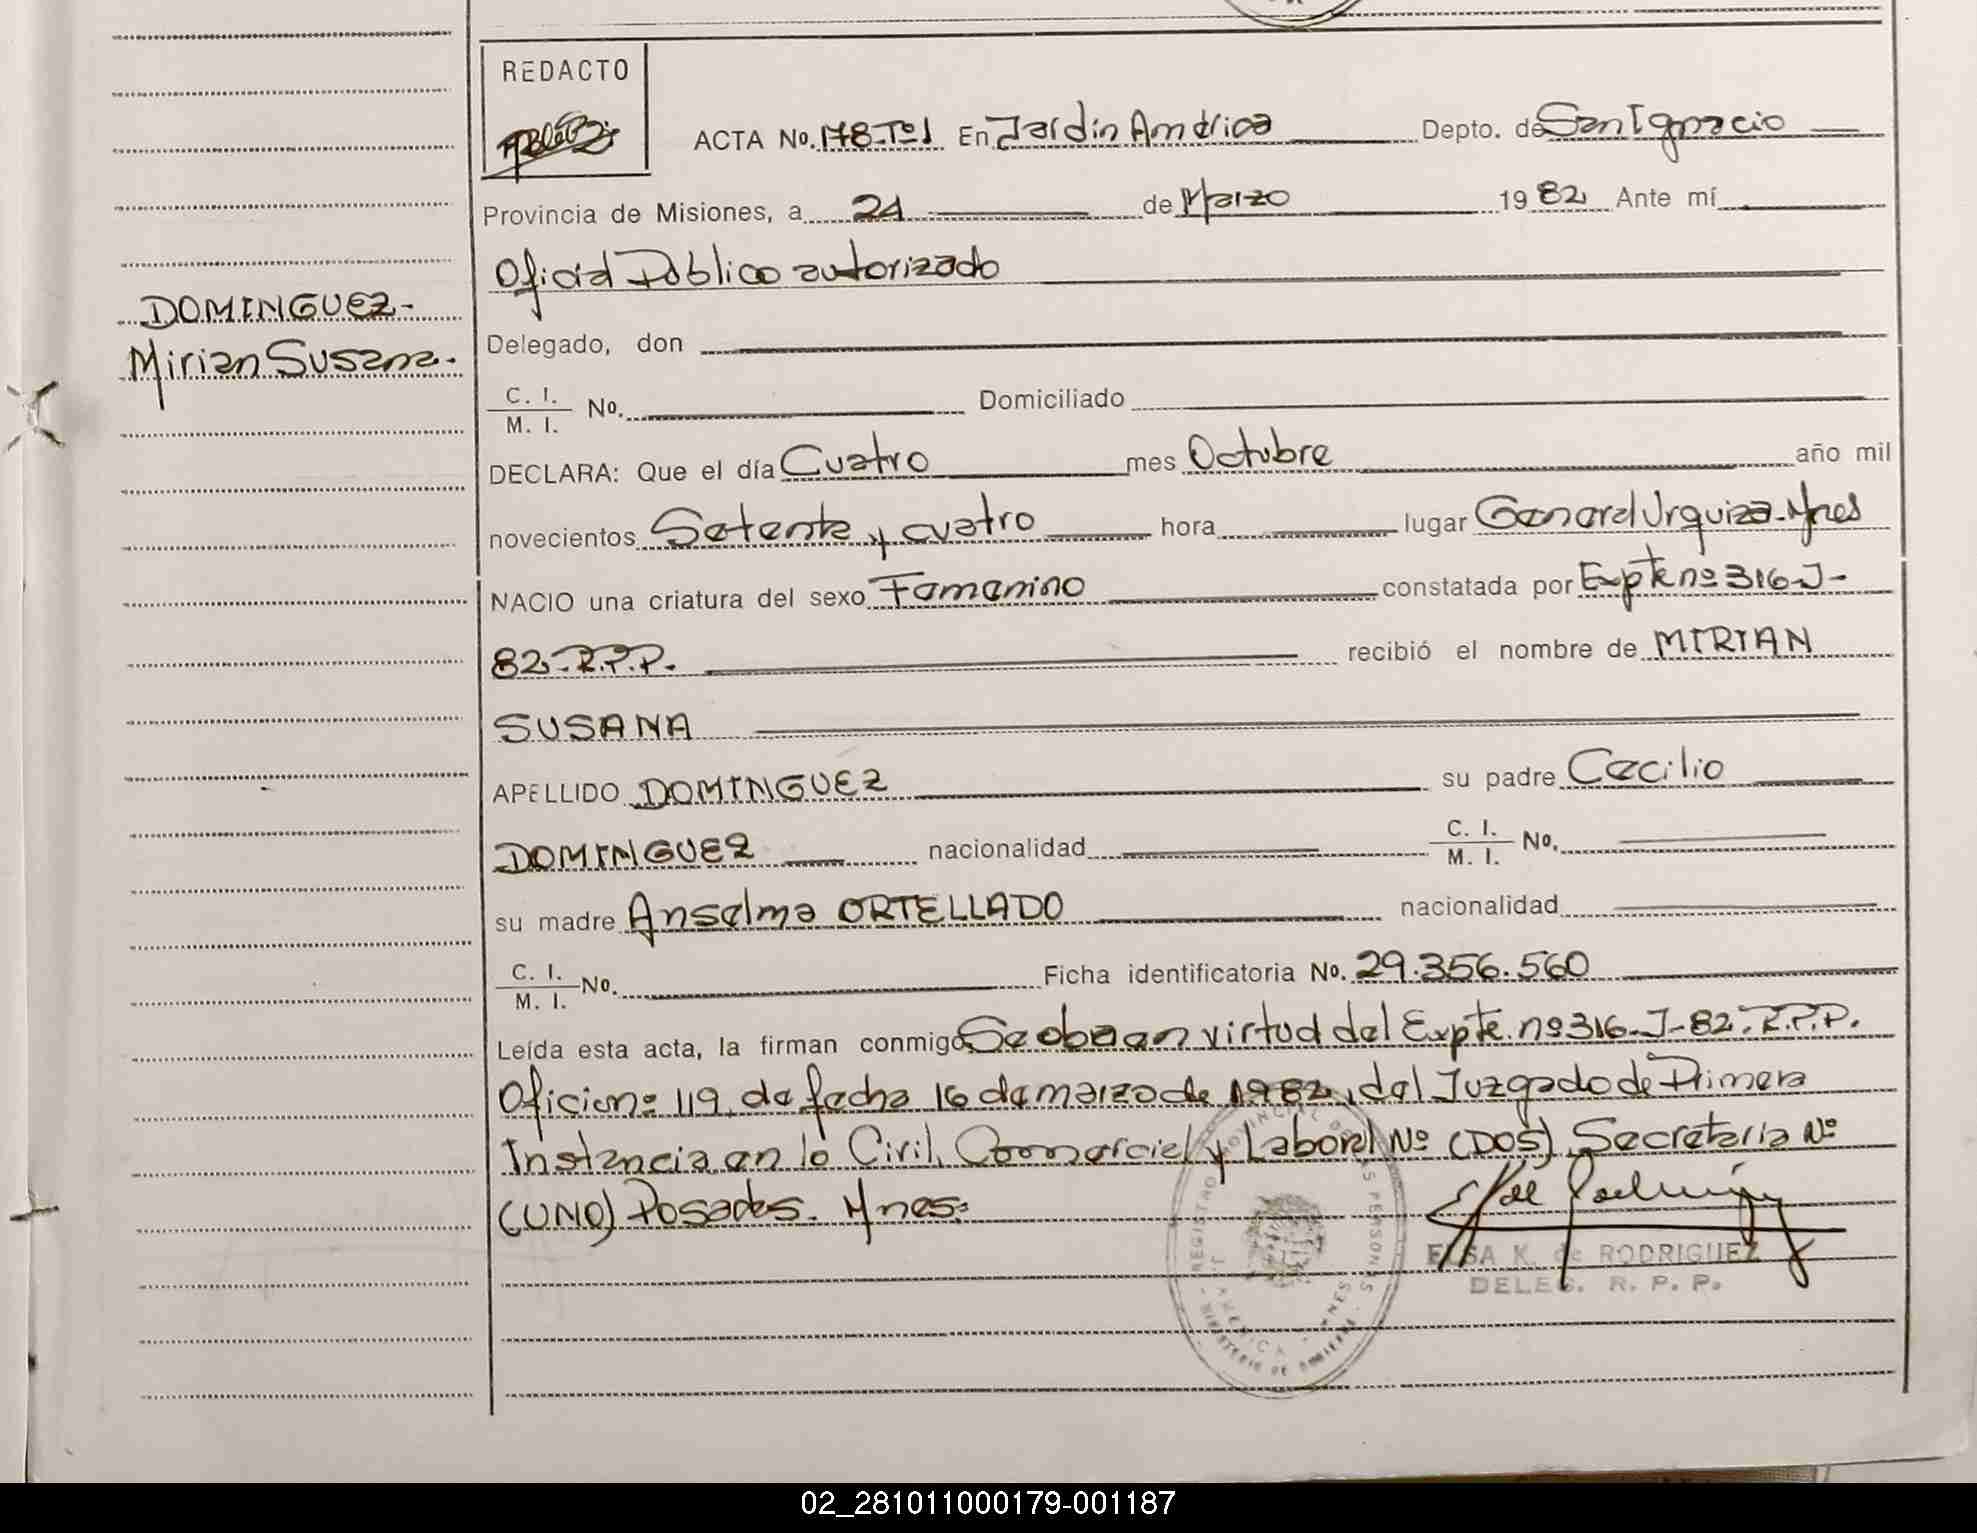 REDACTO
ACTA No. 178-Tº1 En Jardin América Depto. de San Ignacio
Provincia de Misiones, a 24 de Marzo 1982 Ante mí
Oficial Público autorizado
DOMINGUEZ-
Mirian Susana.
Delegado, don
C. I.
M. I. No. Domiciliado
DECLARA: Que el día Cuatro mes Octubre año mil
novecientos Setenta y cuatro hora lugar General Urquiza-Mnes
NACIO una criatura del sexo Femenino constatada por Expte nº 316-J-
82-R.P.P. recibió el nombre de MIRIAN
SUSANA
APELLIDO DOMINGUEZ su padre Cecilio
DOMINGUEZ nacionalidad C. I.
M. I. No.
su madre Anselma ORTELLADO nacionalidad
C. I.
M. I. No. Ficha identificatoria No. 29.356.560
Leída esta acta, la firman conmigo Se obra en virtud del Expte. nº 316-J-82-R.P.P.
Oficio nº 119, de fecha 16 de marzo de 1982, del Juzgado de Primera
Instancia en lo Civil, Comercial y Laboral Nº (DOS), Secretaria Nº
(UNO) Posadas. Mnes.
REGISTRO PROVINCIAL DE LAS PERSONAS
ELSA K. de RODRIGUEZ
DELEG. R. P. P.
02_281011000179-001187